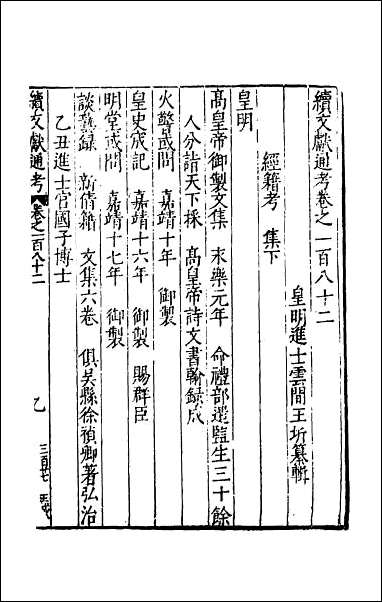 續文獻通考卷之一百八十二
皇明進士雲間王圻纂輯
經籍考 集下
皇明
高皇帝御製文集 永樂元年 命禮部選監生三十餘
人分詣天下採 高皇帝詩文書翰錄成
火警或問 嘉靖十年 御製
皇史宬記 嘉靖十六年 御製 賜群臣
明堂或問 嘉靖十七年 御製
談藝録 新倩籍 文集六卷 俱吳縣徐禎卿著弘治
乙丑進士官國子博士
續文獻通考 卷之一百八十二 乙